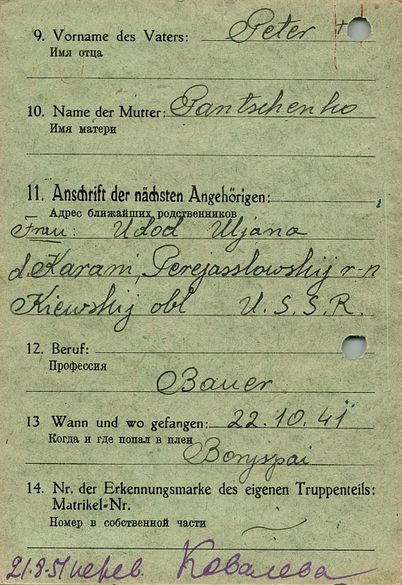 9. Vorname des Vaters: Peter +
Имя отца
10. Name der Mutter: Pantschenko
Имя матери
11. Anschrift der nächsten Angehörigen:
Адрес ближайших родственников
Frau: Udod Uljana
d. Karani, Perejasslowskij r-n
Kiewskij obl U.S.S.R.
12. Beruf:
Профессия
Bauer
13 Wann und wo gefangen: 22.10.41
Когда и где попал в плен
Boryspai
14. Nr. der Erkennungsmarke des eigenen Truppenteils:
Matrikel-Nr.
Номер в собственной части
21.8.51 перев. Ковалева